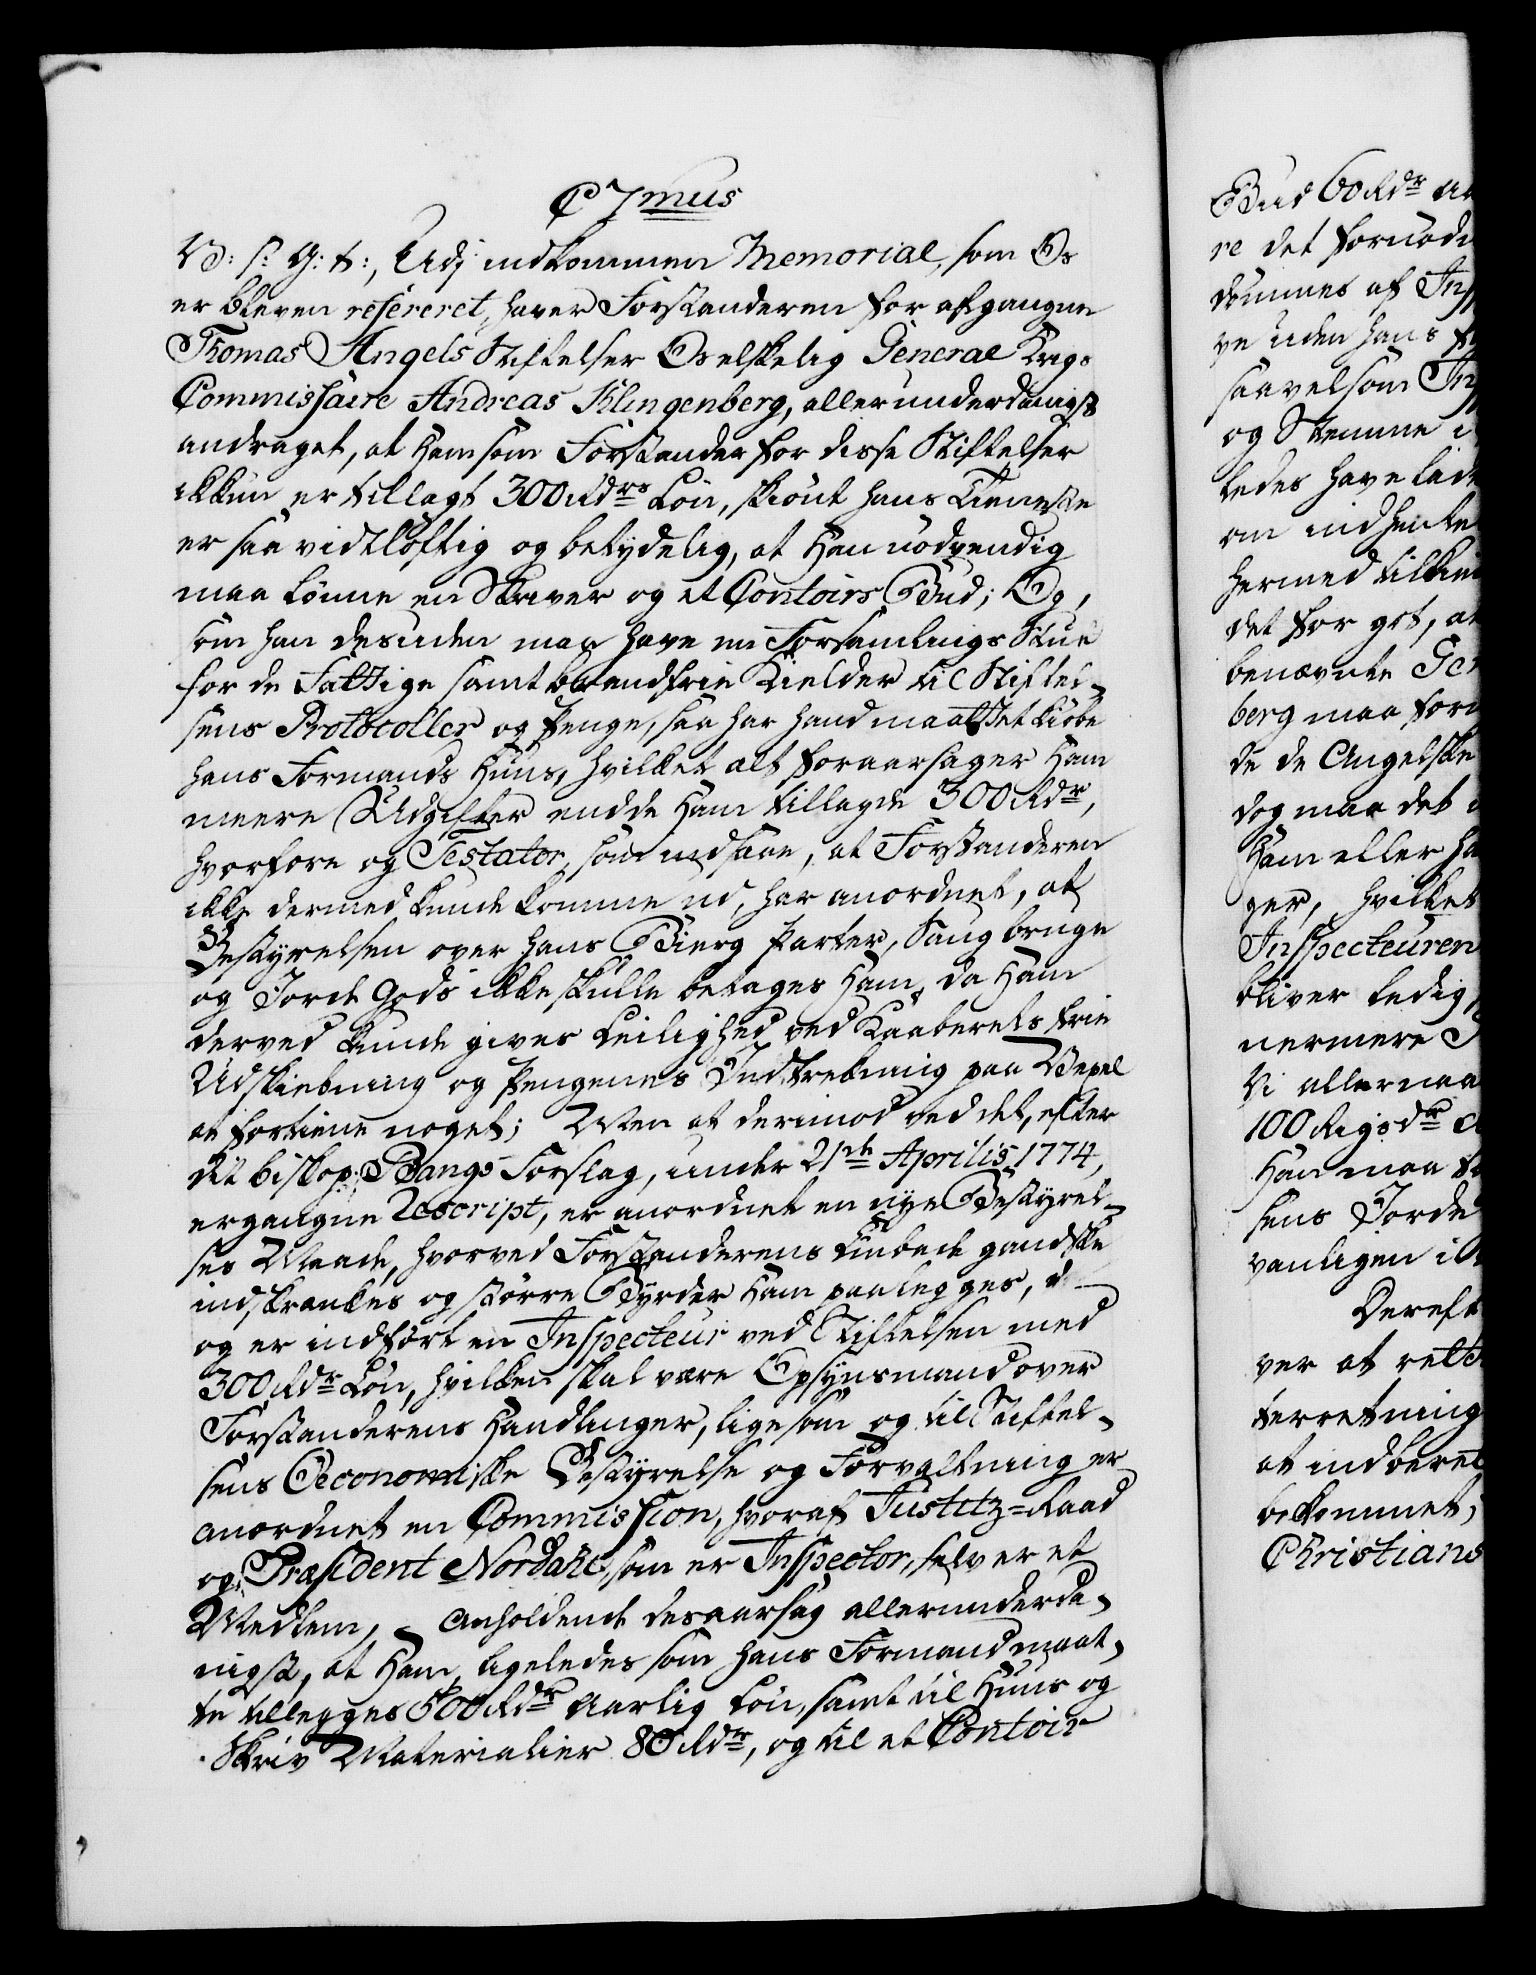 C 7mus
V: s: G: t:, Udj indkommen Memorial, som Os
er bleven refereret, haver Forstanderen for afgangne
Thomas Angels Stiftelser Os elskelig General Krigs
Commissaire Andreas Klingenberg, allerunderdanigst
andraget, at Ham som Forstander for disse Stiftelser
ikkun er tillagt 300 Rdrs Løn, skiønt hans Tieneste
er saa vidtløftig og betydelig, at Han nødvendig
maa lønne en Skriver og et Contoirs Bud; Og,
som han desuden maa have en Forsamlings Stue
for de Fattige samt brandfrie Kielder til Stiftel-
sens Protocoller og Penge, saa har hand maattet kiøbe
hans Formands Huus, hvilket alt foraarsager Ham
meere Udgifter end de Ham tillagde 300 Rdr,
hvorfore og Testator, som indsaae, at Forstanderen
ikke dermed kunde komme ud, har anordnet, at
Bestyrelsen over hans Bierg Parter, Saugbruge
og Jorde Gods ikke skulle betages Ham, da Ham
derved kunde gives Leilighed ved Kaaberets frie
Udskibning og Pengenes Indtrekning paa Vexel
at fortiene noget; Men at derimod ved det, efter
dit biskop Bangs Forslag, under 21de Aprilis 1774,
ergangne Rescript, er anordnet en nye Bestyrel-
ses Maade, hvorved Forstanderens Embede gandske
indskrænkes og større Byrder Ham paalegges, d
og er indført en Inspecteur ved Stiftelsen med
300 Rdr Løn, hvilken skal være Opsynsmand over
Forstanderens Handlinger, ligesom og til Stiftel-
sens Oeconomiske Bestyrelse og Forvaltning er
anordnet en Commission, hvoraf Justitz=Raad
og Præsident Nordahl, som er Inspector, selv er et
Medlem, Anholdende desaarsag allerunderda-
nigst, at Ham, ligeledes som hans Formand maat-
te tillegges 500 Rdr aarlig Løn, samt til Huus og
Skriv Materialier 80 Rdr, og til et Contoir
Bud 60 Rdr
re det
af
uden hans
saavelsom
og Stemme
ledes have
om indhente
hermed
det for got, at
benævnte
berg maa
de de Angelske
dog maa det
Ham eller
ger, hvilket
Inspecteuren
bliver ledig,
nermere
Vi allernaa
100 Rigsdr
Han maa
sens Jorde
vanligen i
Dereft
ver at rett
terretning
at indberet
bekommet,
Christians